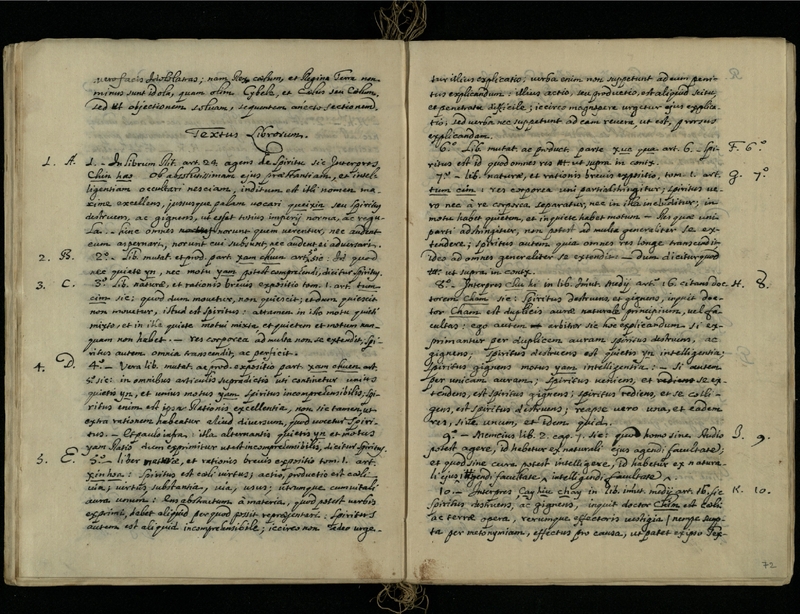 vero facis Idololatras; nam Rex cœlum, et Regina Terra non
minus sunt idola, quam olim Cybele, et Cœlus seu Cœlum,
sed ut objectionem soluam, sequentem annecto sectionem.
Textus Librorum.
1. A. 1. - In librum Rit. art. 24. agens de Spiritu sic Interpres
Chin hao Ob altissimam ejus præstantiam, et intel-
ligentiam occultari nesciam, inditum est illi nomen ma-
xime excellens, jussumque palam vocari queixin seu Spiritus
destruens, ac gignens, ut esset totius imperij norma, ac regu-
la. - hinc omnes norunt quem uerentur, nec audent
eum aspernari, norunt cui subsunt, nec audent ei adversari.
2. B. 2º. Lib. mutat. et prod. part. yam chuen art. sic: Id quod
nec quiete yn, nec motu yam potest comprehendi, dicitur Spiritus.
3. C. 3º. Lib. naturæ, et rationis brevis expositio tom. 1. art. tum
cim sic: quod dum mouetur, non quiescit; et dum quiescit
non mouetur, istud est Spiritus: attamen in ilio motu quiēs
mixto, et in ilia quiete motui mixta et quietem et motum nun-
quam non habet. - res corporea ad multa non se extendit, Spi-
ritus autem omnia transcendit, ac perficit.
4. D. 4º. - Vera lib. mutat. ac prod. expositio part. xam chuen art.
5. sic: in omnibus articulis supradictis uti continetur unius
quietis yn, et unius motus yam Spiritus incomprehensibilis; Spi-
ritus enim est ipsa Rationis excellentia, non sic tamen, ut
extra rationem habeatur aliud diversum, quod vocetur Spiri-
tus. - Et paulo infra: illa alternantis quietis yn et motus
yam Ratio dum exprimitur ut est incomprehensibilis, dicitur Spiritus.
5. E. 5º. - liber naturæ, et rationis brevis expositio tom. 1. art.
xin hoa: Spiritus est cœli virtus; actio, productio est cœli
via; virtus substantia, via, usus; utrumque unius tali
aura unum: Ens abstractum à materia, quod potest verbis
exprimi, debet aliquid per quod possit repræsentari: Spiritus
autem est aliquid incomprehensibile; iccirco non adeo urge-
tur illius explicatio; verba enim non suppetunt ad eum peni-
tus explicandum: illius actio, seu productio, est aliquid situ,
et penetratu difficile; iccirco magnopere urgetur ejus explica-
tio, sed verba nec suppetunt ad eam reuera, ut est, prorsus
explicandam.
6º. Lib. mutat. ac product. parte xue qua art. 6. Spi- F. 6º
ritus est id quod omnes res ut supra in contx.
7º. - lib. naturæ, et rationis brevis expositio, tom. 1. art. G. 7º
tum cim: res corporea uni parti alstringitur; spiritus ve-
ro nec à re corporea separatur, nec in illa includitur, in
motu habet quietem, et in quiete habet motum - Res quæ uni
parti adstringitur, non potest ad multa generaliter se ex-
tendere; Spiritus autem quia omnes res longe transcendit
ideo ad omnes generaliter se extendit. - dum dicitur quod
ut supra in contx.
8º. - Interpres Chu hi in lib. Imut. medij art. 16. citans doc- H. 8.
torem Cham sic: Spiritus destruens et gignens, inquit doc-
tor Cham est duplicis auræ naturale principium, vel fa-
cultas: ego autem arbitror sic hoc explicandum. Si ex-
primantur per duplicem auram spiritus destruens, ac
gignens, Spiritus destruens est quietis yn intelligentia;
Spiritus gignens motus yam intelligentia: - Si autem
per unicam auram; Spiritus veniens, et se ex-
tendens, est Spiritus gignens; spiritus rediens, et se colli-
gens, est Spiritus destruens; reapse vero una, et eadem
res, sine unum, et idem quid.
9º. - Mencius lib. 2. cap. 7. sic: quod homo sine studio J. 9.
potest agere, id habetur ex naturali ejus agendi facultate;
et quod sine cura potest intelligere, id habetur ex natura-
li ejus intelligendi facultate.
10. - Interpres Cay hiu chay in lib. imut. medij art. 16. sic K. 10.
Spiritus destruens, ac gignens, inquit doctor Chim est cœli
ac terræ opera, rerumque effectoris vestigia (nempe sump-
ta per metonymiam, effectus pro causa, ut patet ex ipso Tex-
72